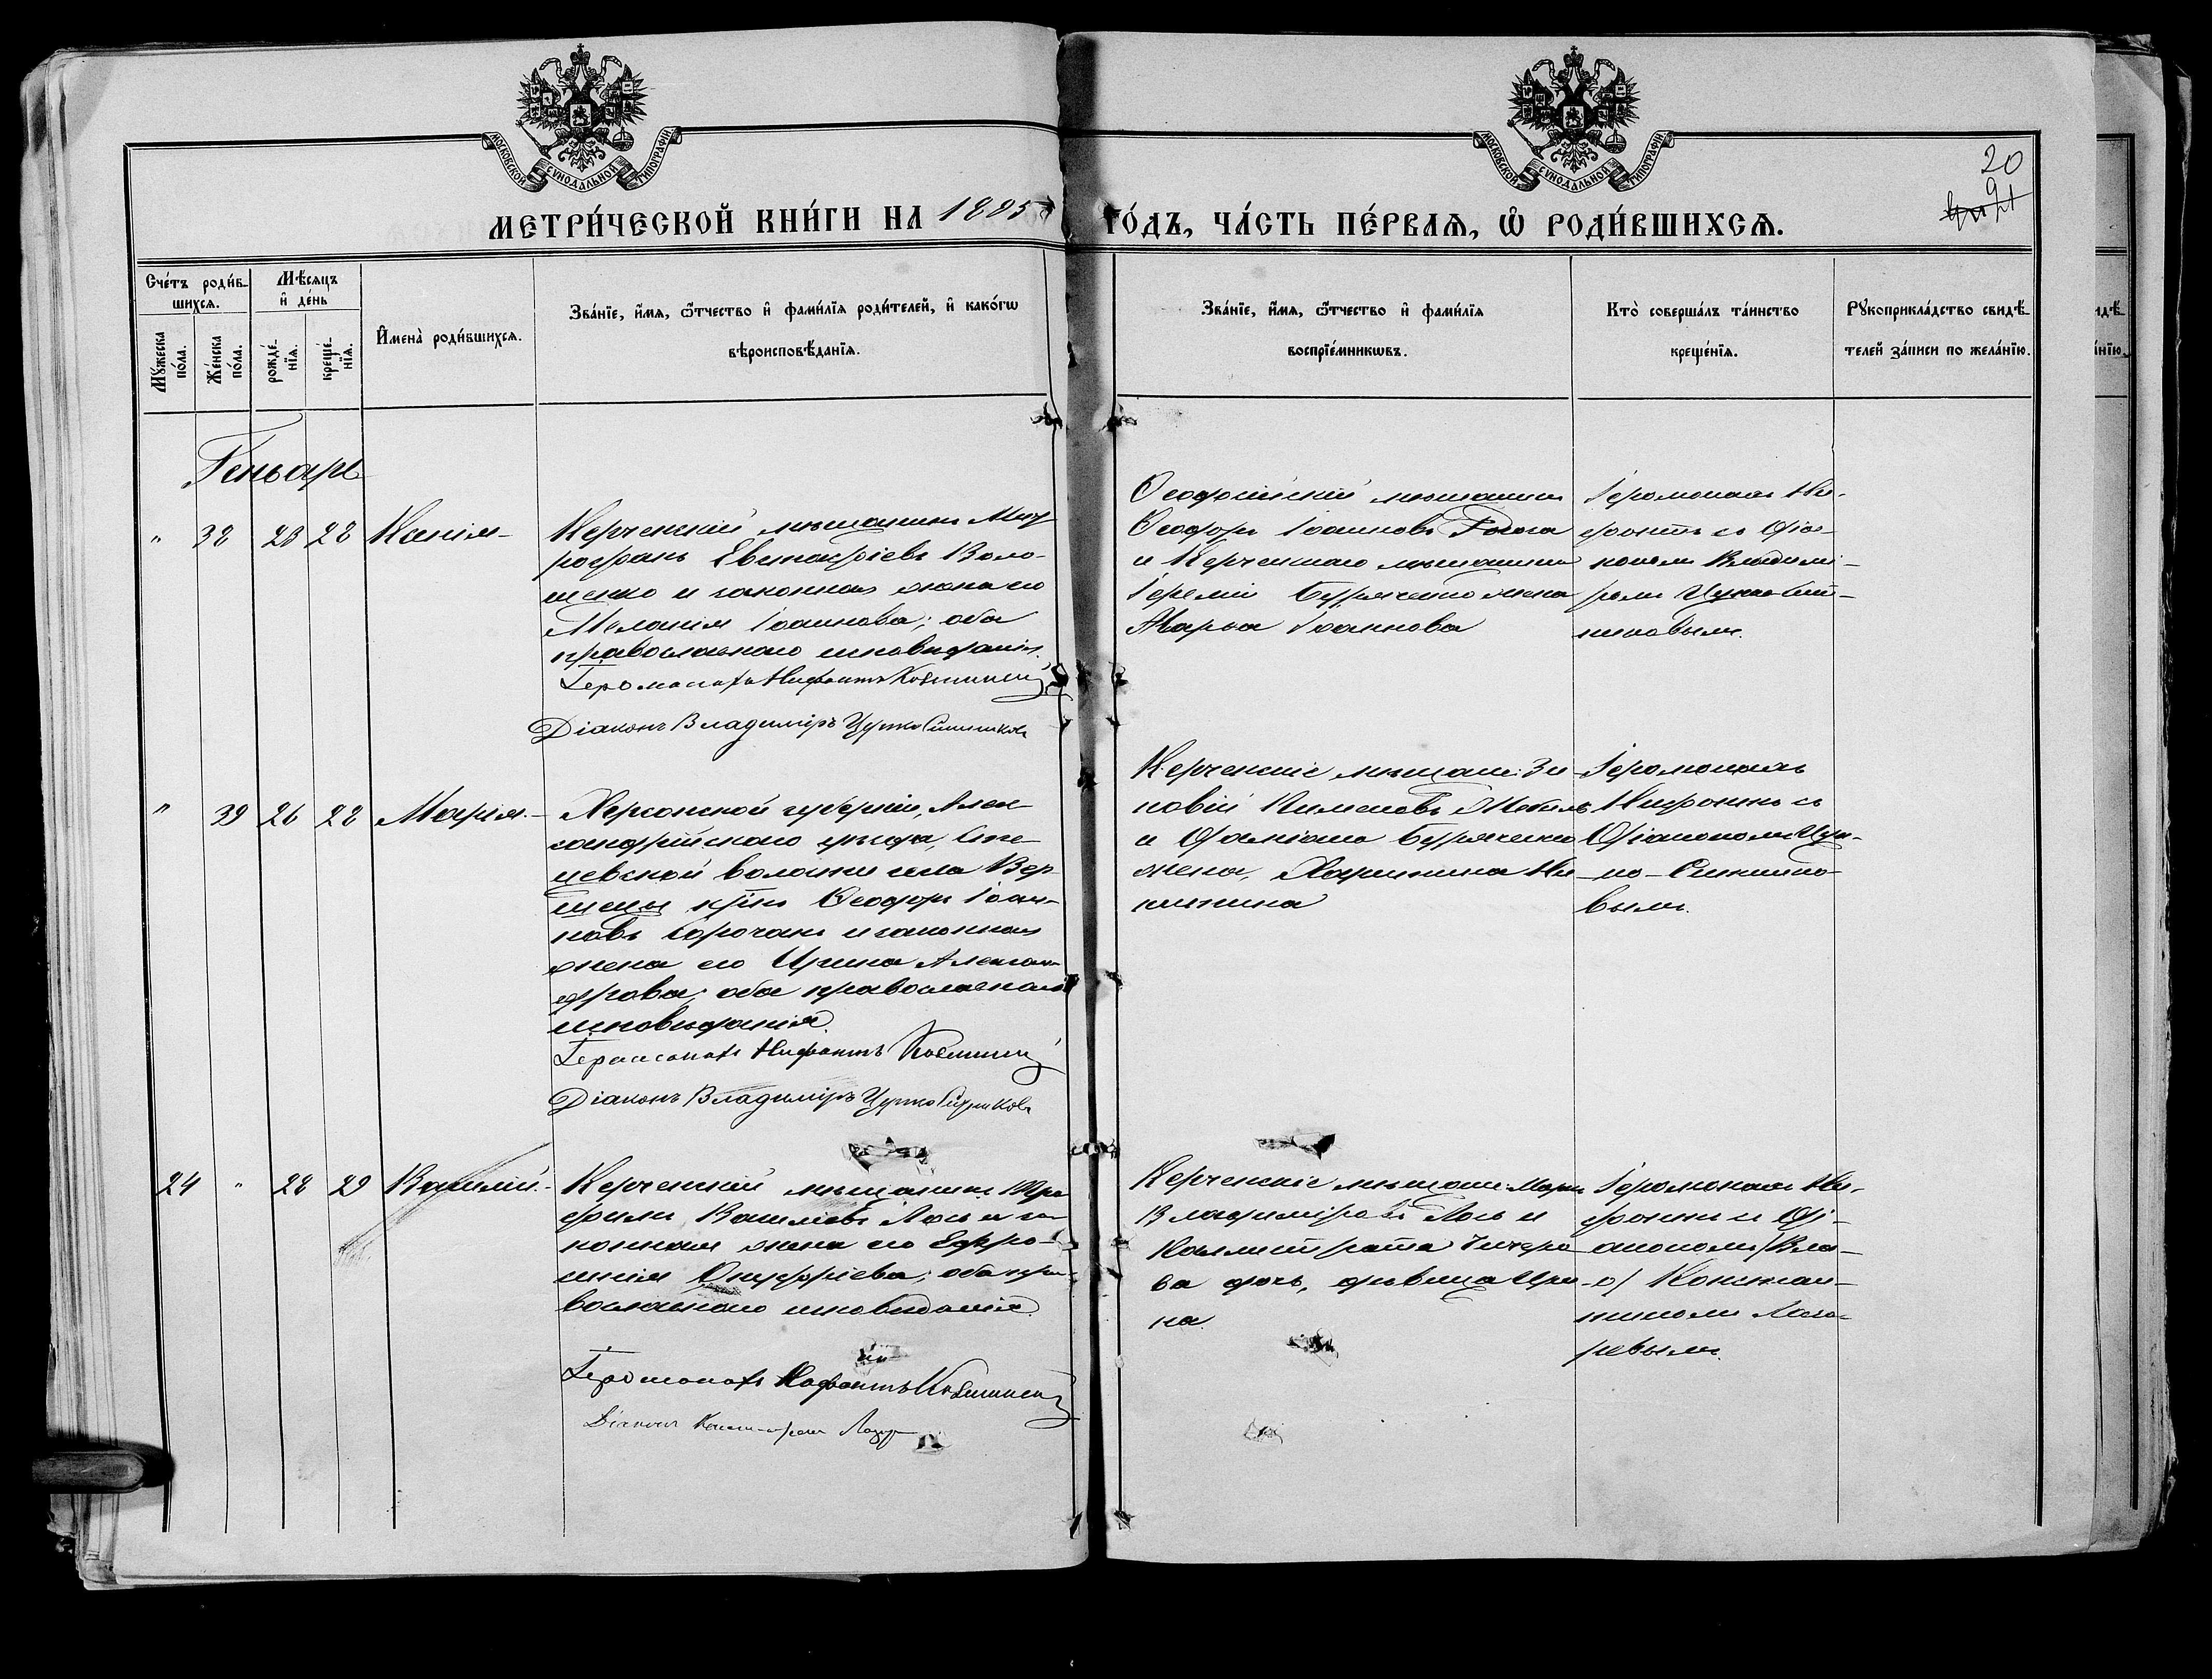 МОСКОВСКОЙ СУНОДАЛЬНОЙ ТИПОГРАФІИ
МОСКОВСКОЙ СУНОДАЛЬНОЙ ТИПОГРАФІИ
20
МЕТРИ́ЧЕСКОЙ КНИ́ГИ НА 1885 ГО́ДЪ, ЧА́СТЬ ПЕ́РВАѦ, Ѡ РОДИ́ВШИХСѦ.
Сче́тъ роди́в-
шихсѧ.
Мꙋ́жеска по́ла.
Же́нска по́ла.
Мѣ́сѧцъ
и҆ де́нь
рожде́-
нїѧ.
креще́-
нїѧ.
И҆мена̀ роди́вшихсѧ.
Зва́нїе, и҆́мѧ, ѻ҆́тчество и҆ фами́лїѧ роди́телей, и҆ како́гѡ
вѣроисповѣ́данїѧ.
Зва́нїе, и҆́мѧ, ѻ҆́тчество и҆ фами́лїѧ
воспрїе́мникѡвъ.
Кто̀ соверша́лъ та́инство
креще́нїѧ.
Рꙋкоприкла́дство свидѣ́-
телей за́писи по жела́нїю.
Геньварь
" 38 23 28 Ксенія
Керченскій мѣщанинъ Мит-
рофанъ Евстафіевъ Воло-
шенко и законная жена его
Меланія Іоаннова; оба
православнаго исповѣданія.
Іеромонахъ Нифонтъ
Діаконъ Владиміръ Цурко-Ситниковъ
Ѳеодосійскій мѣщанинъ
Ѳеодоръ Іоанновъ
и Керченскаго мѣщанина
Іереміи жена
Марѳа Іоаннова
Іеромонахъ Ни-
фонтъ съ діа-
кономъ Владимі-
ромъ Цурко-Сит-
никовымъ.
" 39 26 28 Марія.
Херсонской губерніи, Алек-
сандрійскаго уѣзда,
волости села Вер-
Ѳеодоръ Іоан-
новъ и законная
жена его Ирина Алексан-
дрова; оба православнаго
исповѣданія.
Іеромонахъ Нифонтъ
Діаконъ Владиміръ Цурко-Ситниковъ
Керченскіе мѣщане: Зи-
новій Пименовъ
и Даміана
жена,
Іеромонахъ
Нифонтъ съ
Діакономъ Цур-
ко-Ситнико-
вымъ.
24 " 28 29 Василій.
Керченскій мѣщанинъ Тро-
фимъ Васильевъ Лось и за-
конная жена его Евфро-
синія Онуфріева; оба пра-
вославнаго исповѣданія.
Іеромонахъ Нифонтъ
Діаконъ Константинъ Лазар
Керченскіе мѣщане:
Владиміровъ Лось и
Каллистрата
ва дочь, дѣвица Ири-
на.
Іеромонахъ Ни-
фонтъ съ Ді-
акономъ
Констан-
тиномъ Лаза-
ревымъ.